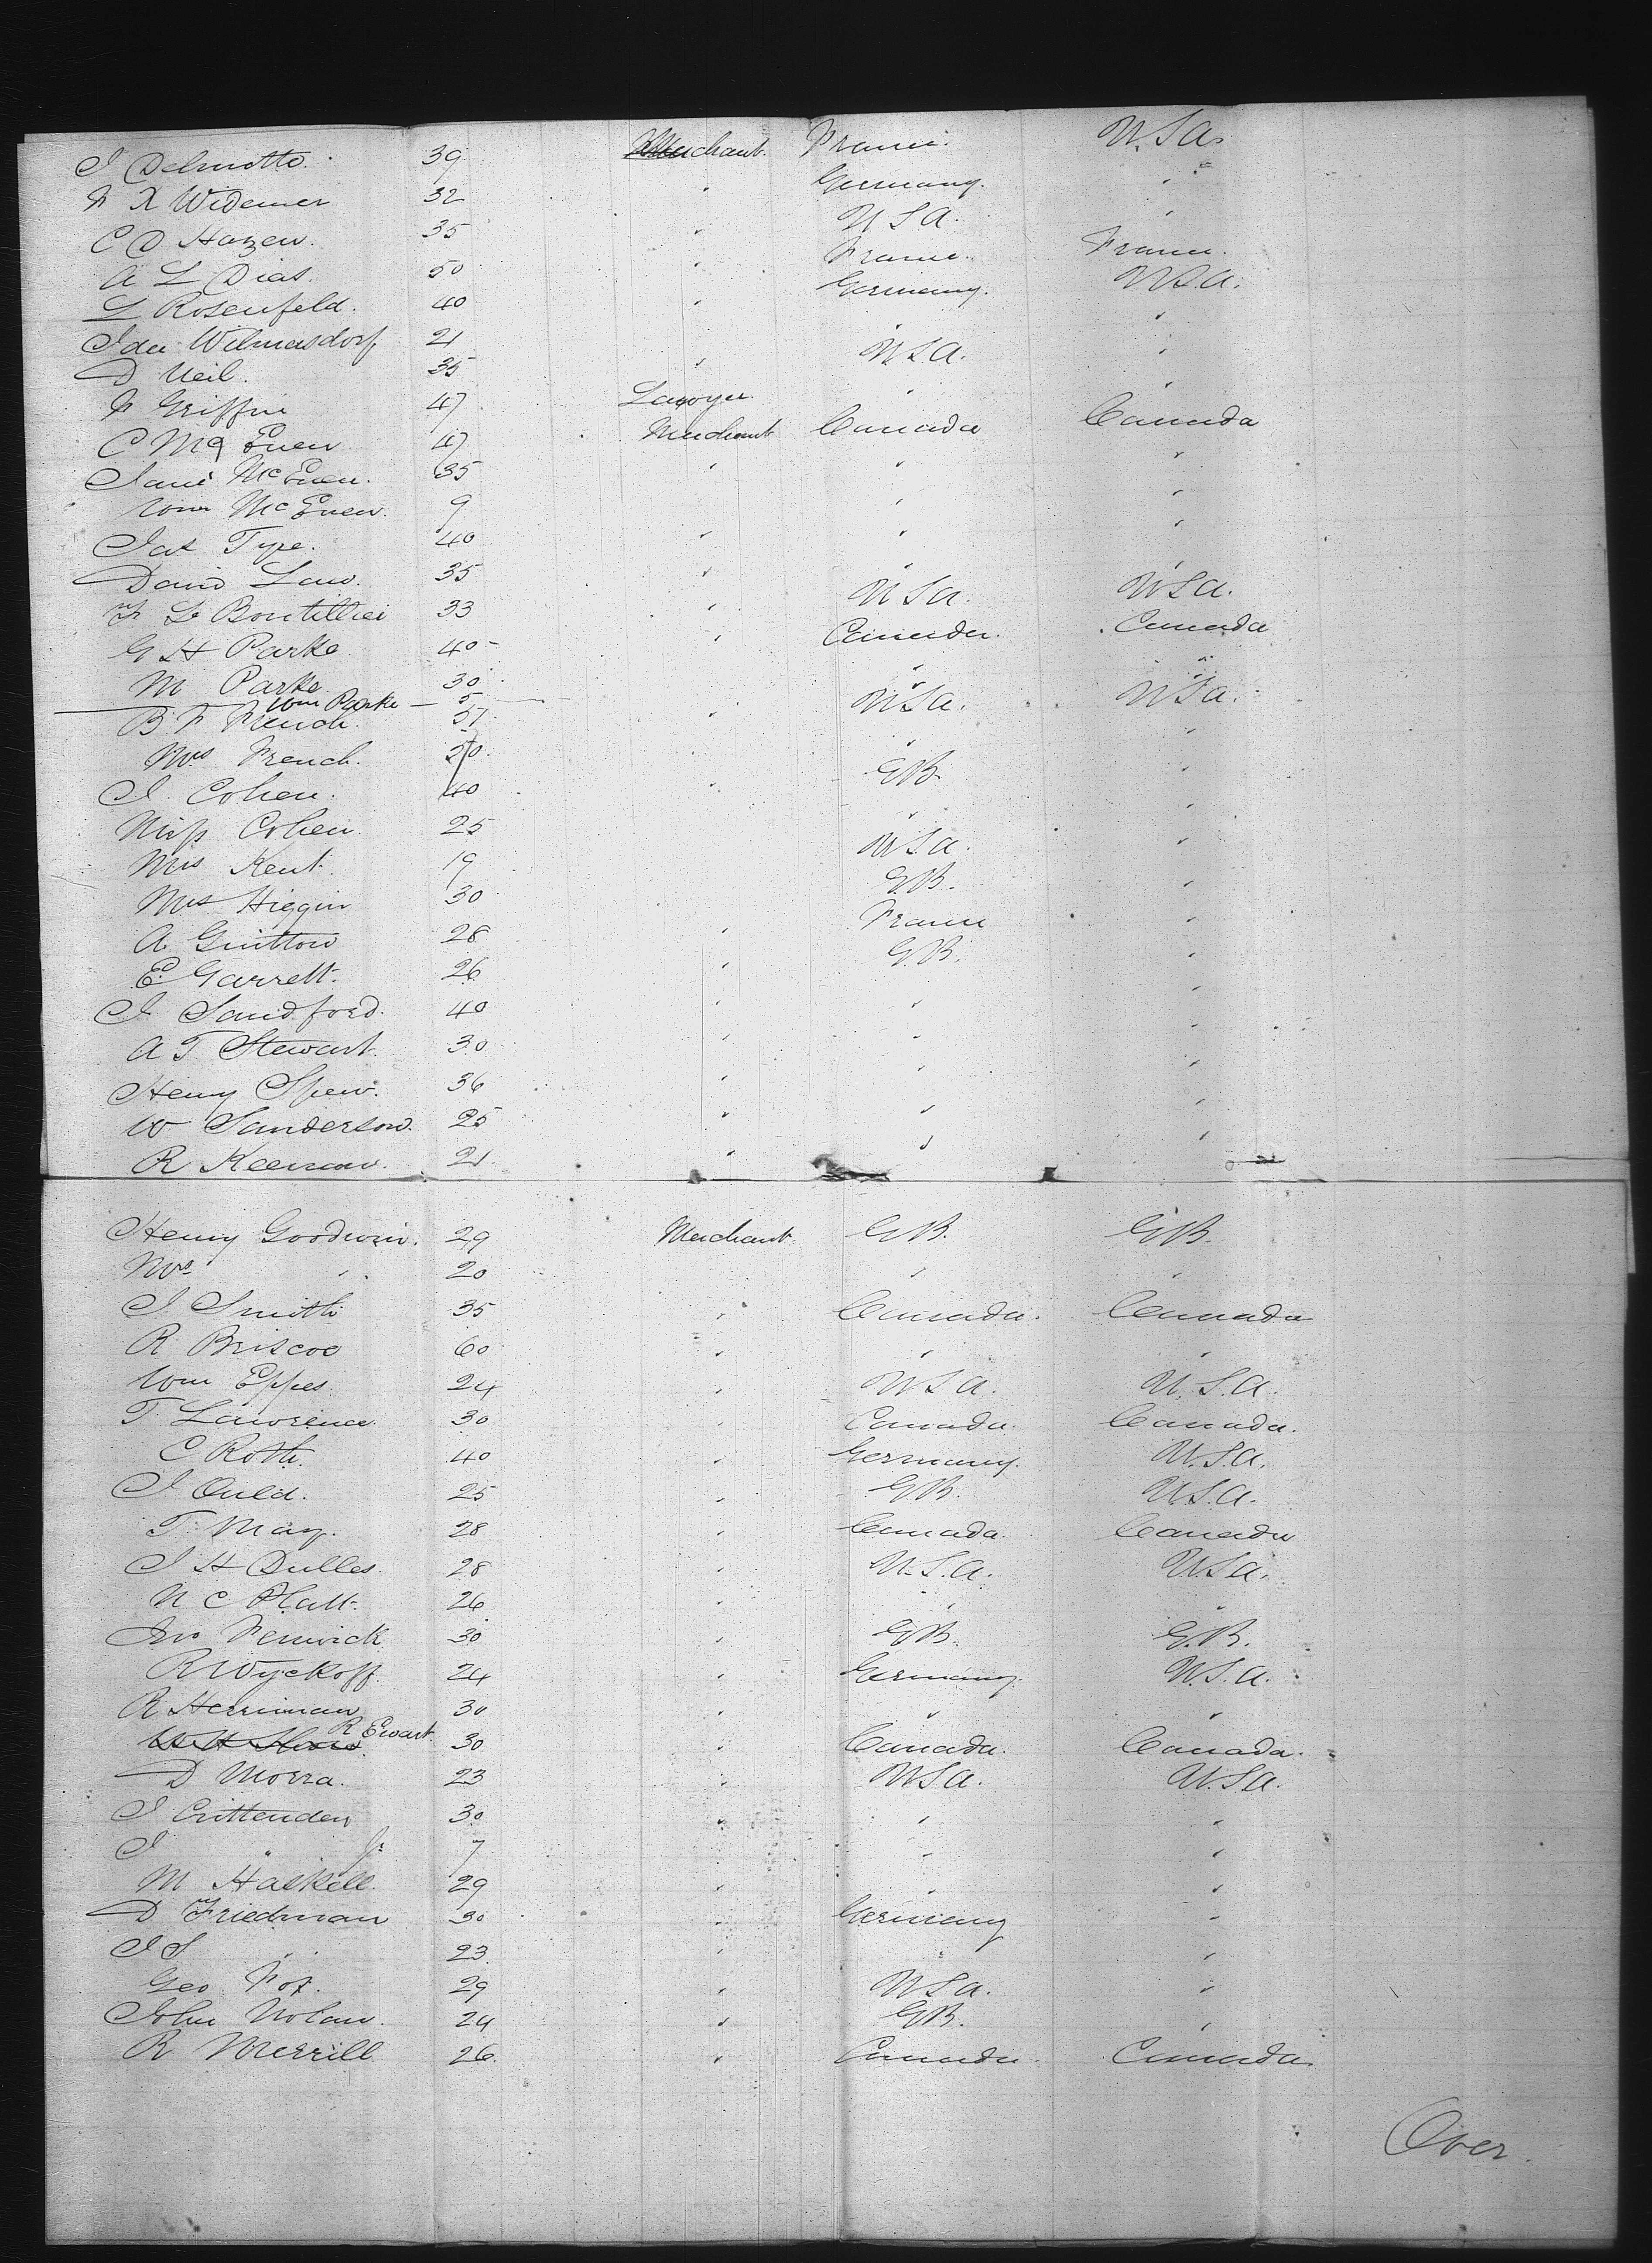 J Delmotte. 39 Merchant. France. U.S.A.
F X Widemer 32 " Germany. "
C D Hazen. 35 " U S A. "
A L Dias. 50 " France. France.
L Rosenfeld. 40 " Germany. U S.A.
Ida Wilmersdorf 21 " "
D Neil. 35 " U S A. "
F Griffin 47 Lawyer " "
C Mc Euen 47 Merchant Canada Canada
Jane McEuen. 35 " " "
Wm McEuen. 9 " "
Jas Type. 40 " " "
David Law. 35 " " "
F Le Boutillier 33 " U S a. U S a.
G H Parke 40 " Canada. Canada
M Parke 30 " "
Wm Parke 5 " "
B F French. 57 " U S a. U S a.
Mrs French. 20 " "
J Cohen. 40 " G B "
Miss Cohen 25 " "
Mrs Kent. 19 U S. a. "
Mrs Higgin 30 G. B. "
A Guitton 28 " France "
E Garrett. 26 " G. B. "
J Sandford. 40 " " "
A T Stewart. 30 " " "
Henry Spew. 36 " " "
W Sanderson. 25 " " "
R Keenan. 21 " " "
Henry Goodwin. 29 Merchant G B. G B.
Mrs " 20 " "
J Smith 35 " Canada. Canada
R Briscoe 60 " " "
Wm Eppes. 24 " U S a. U. S. a.
T. Lawrence 30 " Canada. Canada.
C Roth. 40 " Germany. U. S. a.
J Auld. 25 " G B. U S. a.
T. May. 28 " Canada. Canada
J H Dulles. 28 " U. S. a. U S a.
N C Platt. 26 " " "
Jno Fenwick 30 " G B. G. B.
R Wyckoff. 24 " Germany. U. S. a.
R Herriman 30 " " "
R Ewart 30 " Canada. Canada.
D Morra. 23 " U S a. U. S a.
J Crittenden 30 " " "
J " Jr 7 " " "
M Haskell. 29 " " "
D Friedman 30 " Germany "
J S " 23 " " "
Geo Fox. 29 " U S a. "
John Nolan. 24 " G B. "
R Merrill 26. " Canada. Canada.
Over.